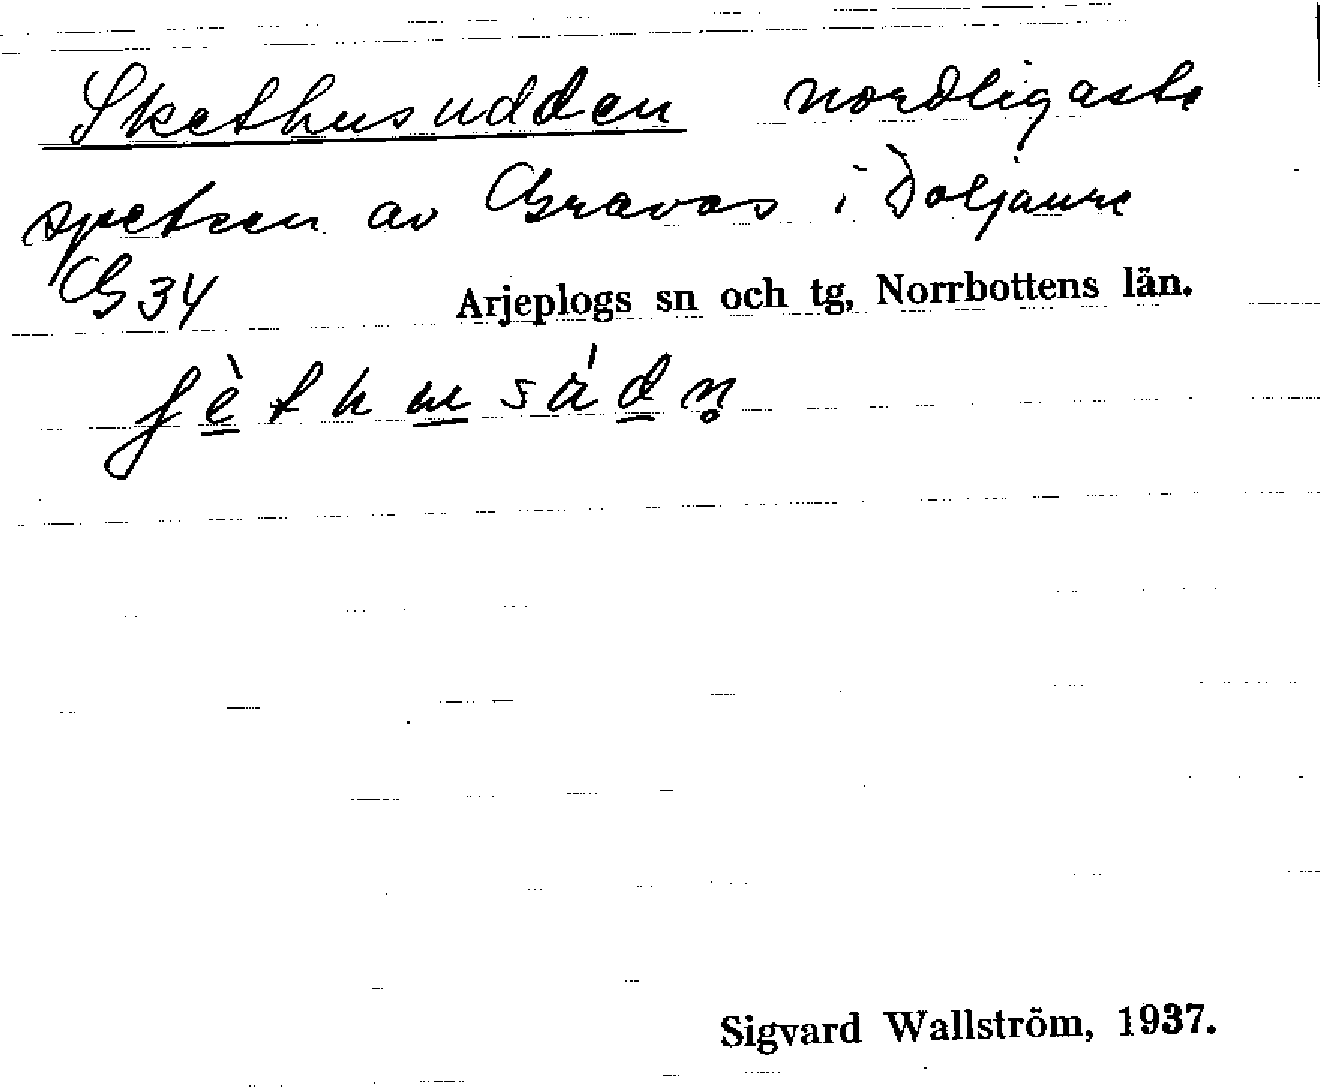 Skethusudden nordligaste
spetsen av Gravas i Doljaure
G 34 Arjeplogs sn och tg, Norrbottens län.
Sigvard Wallström, 1937.